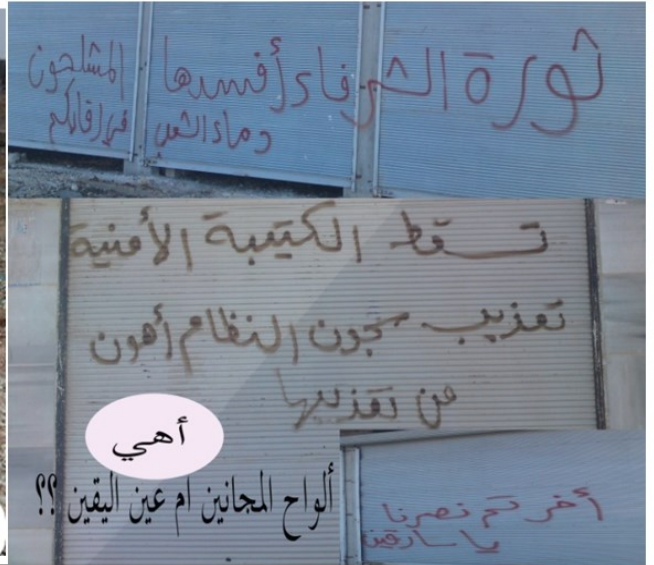 ثورة الشرفاء أفسدها المشلحون
دماء الشعب في رقابكم
تسقط الكتيبة الأمنية
تعذيب سجون النظام أهون
من تعذيبها
أهي
ألواح المجانين أم عين اليقين ؟؟
أخرتم نصرنا
يا سارقين